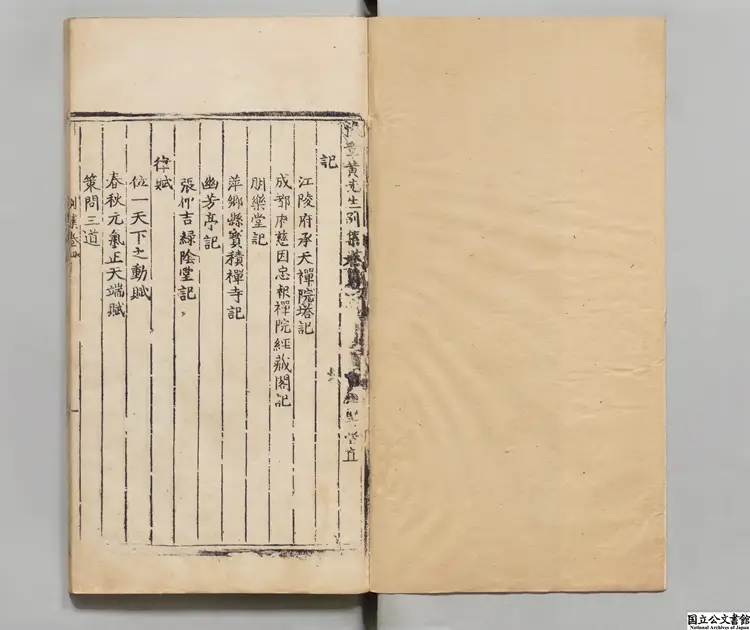 豫章黄先生別集卷第四
記
江陵府承天禪院塔記
成都府慈因忠報禪院經藏閣記
朋樂堂記
萍鄉縣寳積禪寺記
幽芳亭記
張仲吉綠陰堂記
律賦
位一天下之動賦
春秋元氣正天端賦
策問三道
別集卷四
国立公文書館
National Archives of Japan